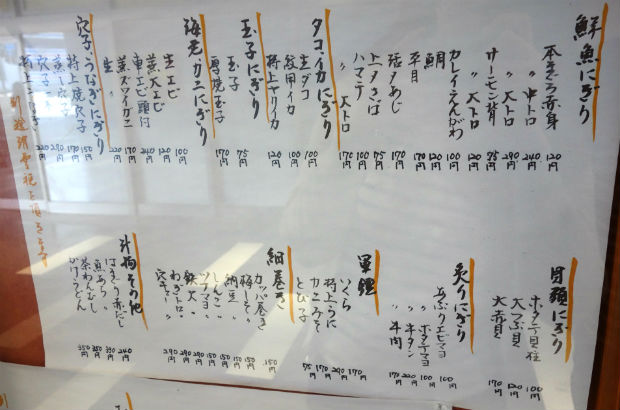 鮮魚にぎり
本まぐろ赤身 120円
〃 中トロ 240円
〃 大トロ 290円
サーモン背 75円
〃 大トロ 120円
カレイえんがわ 100円
鯛 120円
平目 170円
活〆あじ 170円
上〆さば 75円
ハマチ 100円
〃 大トロ 170円
タコ・イカにぎり
生ダコ 100円
紋甲イカ 100円
特上ヤリイカ 120円
玉子にぎり
玉子 75円
厚焼玉子 170円
海老・カニにぎり
生エビ 100円
蒸大エビ 120円
車エビ頭付 240円
生 170円
蒸ズワイガニ 220円
穴子・うなぎにぎり
特上焼穴子
別途消費税を頂きます
貝類にぎり
ホタテ貝柱 100円
大つぶ貝 120円
大赤貝 170円
炙りにぎり
炙りエビマヨ 100円
〃 ホタテマヨ 100円
〃 牛タン 220円
〃 牛肉 170円
軍艦
いくら 170円
特上うに 290円
カニみそ 170円
とび子 75円
細巻き
カッパ巻き 150円
梅しそ〃 150円
納豆〃 150円
しんこ〃 150円
ツナマヨ〃
鉄火〃 290円
ねぎトロ〃 290円
穴きゅう〃 290円
汁物その他
はまぐり赤だし 240円
魚あら〃 330円
茶わんむし 350円
かけうどん 350円